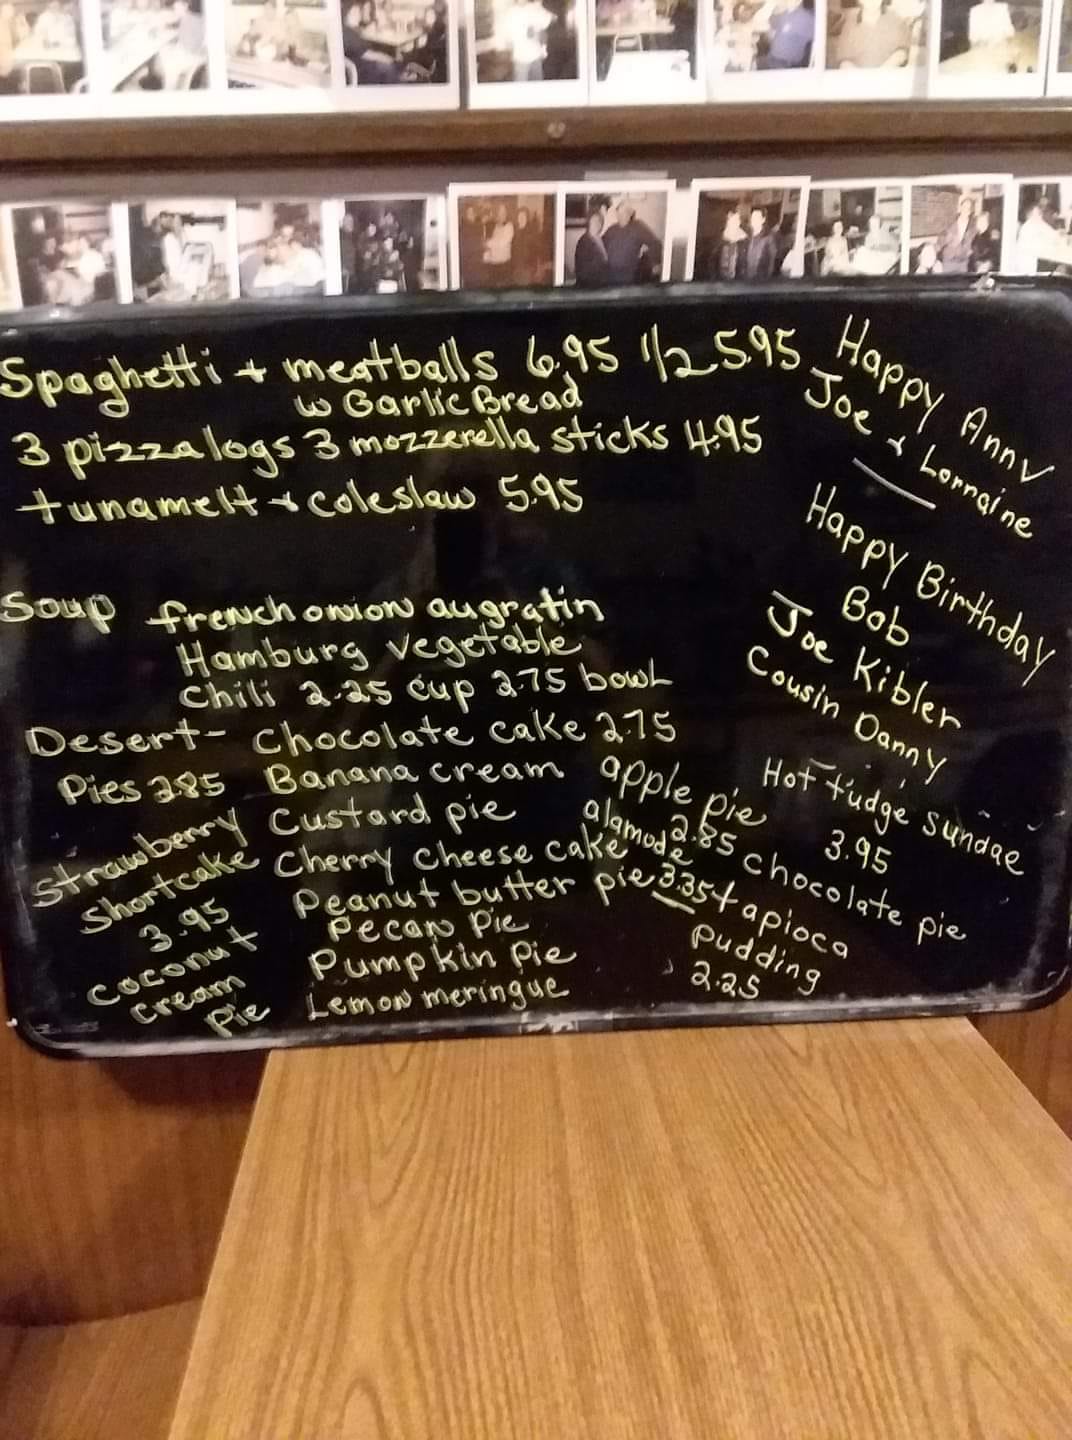 Spaghetti + meatballs 6.95 1/2 5.95
w Garlic Bread
3 pizza logs 3 mozzerella sticks 4.95
tunamelt + coleslaw 5.95
Soup french onion augratin
Hamburg vegetable
Chili 2.25 cup 2.75 bowl
Desert- Chocolate cake 2.75
Pies 2.85 Banana cream
Custard pie
Cherry Cheese cake
Peanut butter pie
Pecan pie
Pumpkin pie
Lemon meringue
Strawberry
Shortcake
3.95
Coconut
cream
pie
apple pie
2.85
alamode
3.35
chocolate pie
tapioca
pudding
2.25
Hot fudge sundae
3.95
Happy Annv
Joe + Lorraine
Happy Birthday
Bob
Joe Kibler
Cousin Danny